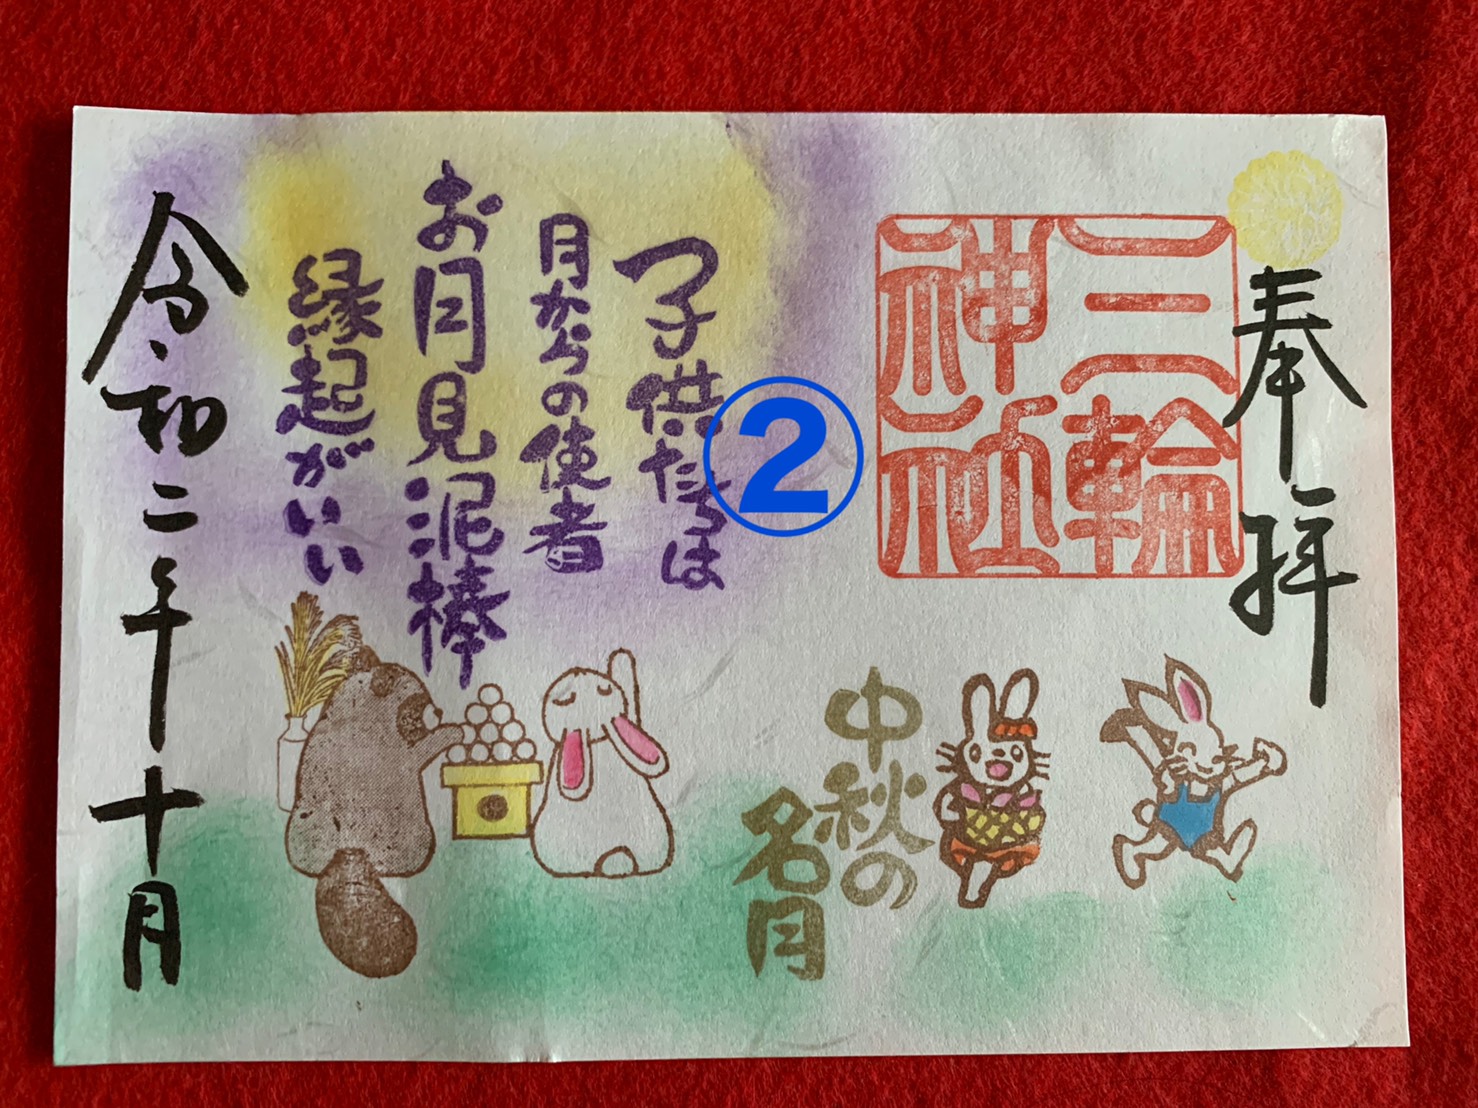 奉拝
三輪
神社
子供たちは
月からの使者
お月見泥棒
縁起がいい
②
中秋の
名月
令和二年十月